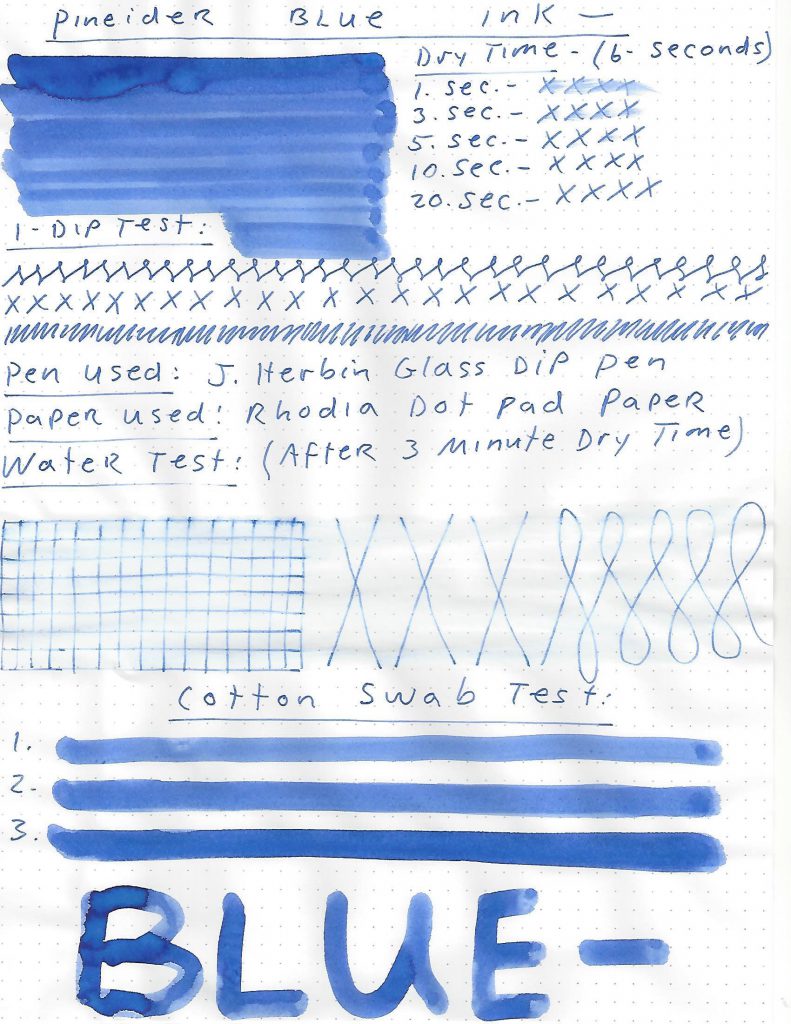 Pineider Blue Ink —
Dry Time - (6- seconds)
1. sec. - X X X X
3. sec. - X X X X
5. sec. - X X X X
10. sec. - X X X X
20. sec. - X X X X
1 - Dip Test:
X X X X X X X X X X X X X X X X X X X X X X X X X
Pen used: J. Herbin Glass Dip Pen
Paper used: Rhodia Dot Pad Paper
Water Test: (After 3 Minute Dry Time)
X X X
Cotton Swab Test:
1.
2.
3.
BLUE —